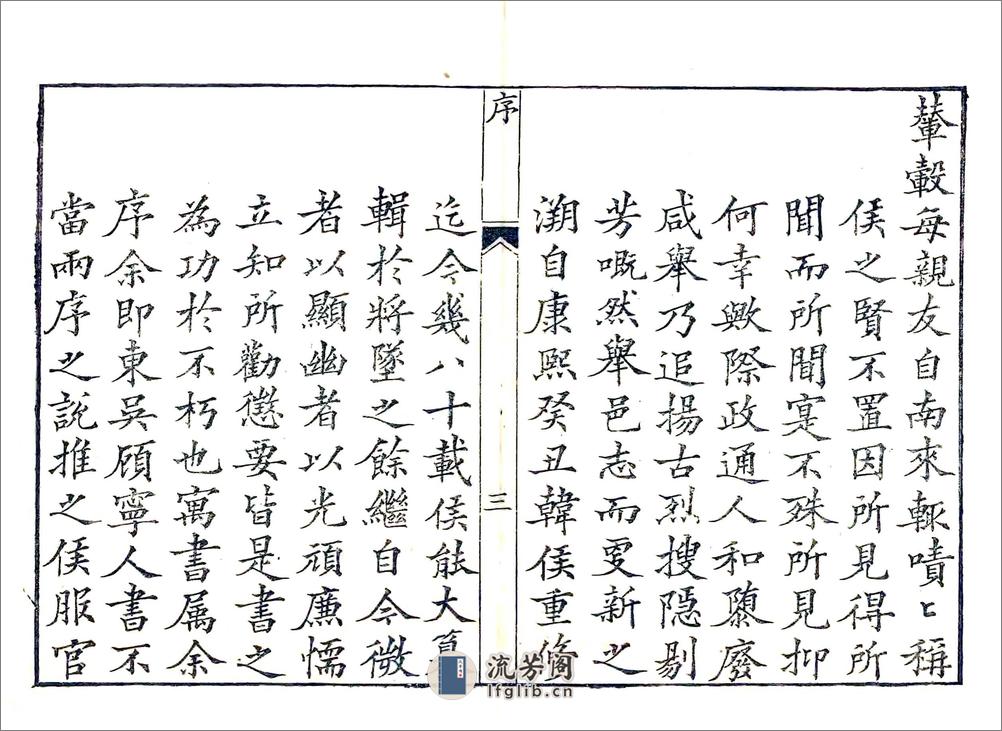 輦轂每親友自南來輒嘖〻稱
侯之賢不置因所見得所
聞而所聞寔不殊所見抑
何幸歟際政通人和隳廢
咸舉乃追揚古烈搜隱剔
芳嘅然舉邑志而更新之
溯自康熙癸丑韓侯重修
序
三
迄今幾八十載侯能大
輯於將墜之餘繼自今微
者以顯幽者以光頑廉懦
立知所勸懲要皆是書之
為功於不朽也寓書属余
序余即東吳顧寧人書不
當兩序之說推之侯服官
流芳阁
lfglib.cn